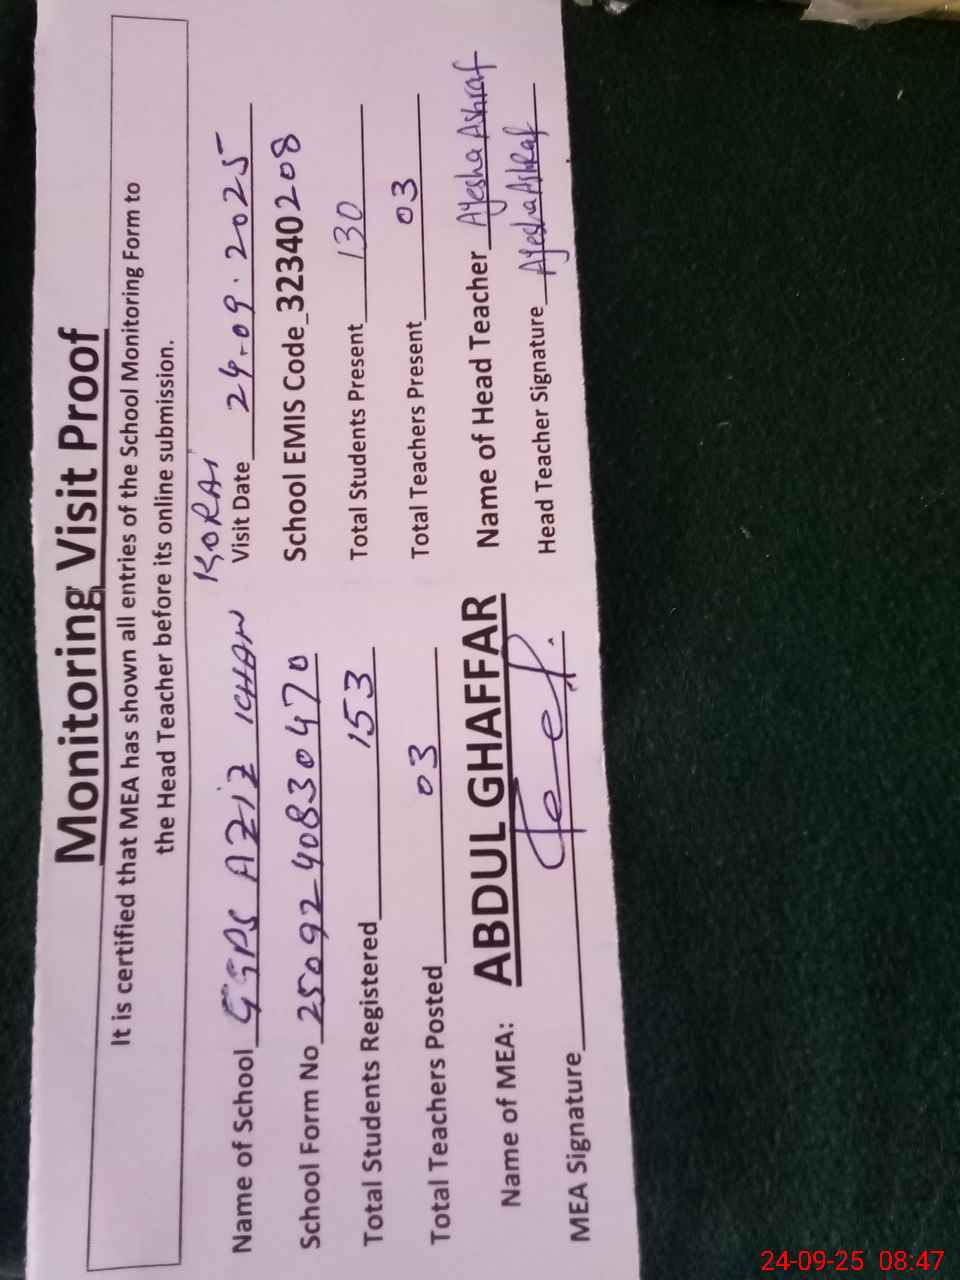 Monitoring Visit Proof
It is certified that MEA has shown all entries of the School Monitoring Form to
the Head Teacher before its online submission.
Name of School GGPS AZIZ KHAN KORAI
Visit Date 24-09.2025
School Form No 25092408830470
School EMIS Code 32340208
Total Students Registered 153
Total Students Present 130
Total Teachers Posted 03
Total Teachers Present 03
Name of MEA: ABDUL GHAFFAR
Name of Head Teacher Ayesha Ashraf
MEA Signature
Head Teacher Signature Ayesha Ashraf
24-09-25 08:47